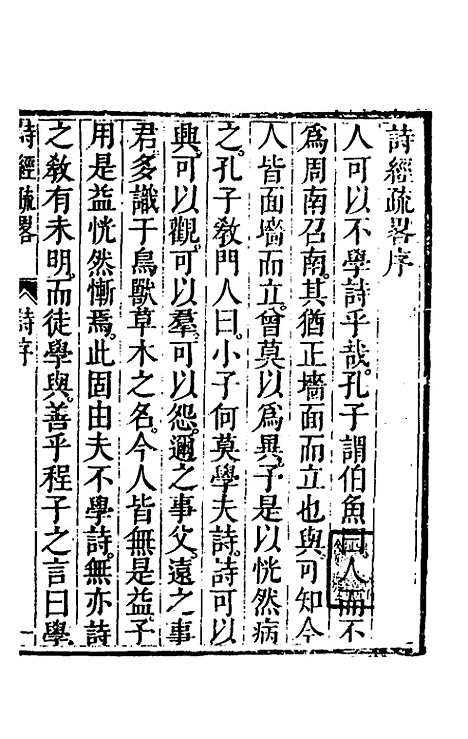 詩經疏畧序
人可以不學詩乎哉孔子謂伯魚曰人而不
爲周南召南其猶正墻面而立也與可知今
人皆面墻而立曾莫以爲異予是以恍然病
之孔子教門人曰小子何莫學夫詩詩可以
興可以觀可以羣可以怨邇之事父遠之事
君多識于鳥獸草木之名今人皆無是益予
用是益恍然慚焉此固由夫不學詩無亦詩
之教有未明而徒學與善乎程子之言曰學
詩經疏畧 詩序 一